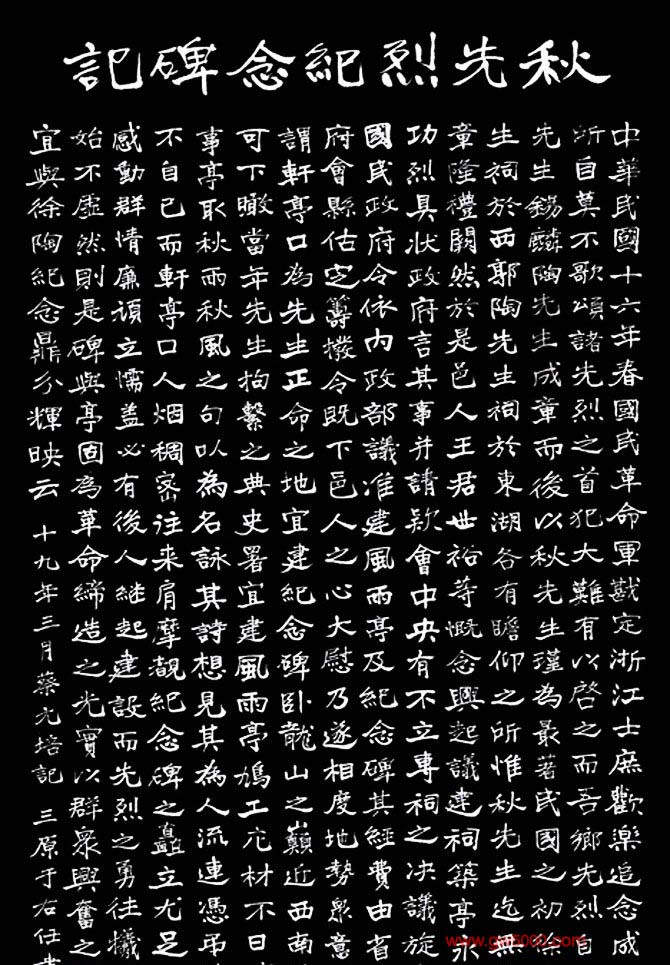 秋先烈紀念碑記
中華民國十六年春國民革命軍戡定浙江士庶歡樂追念成
所自莫不歌頌諸先烈之首犯大難有以啓之而吾鄉先烈自
先生錫麟陶先生成章而後以秋先生瑾為最著民國之初徐
生祠於西郭陶先生祠於東湖各有瞻仰之所惟秋先生迄無
章隆禮闕然於是邑人王君世裕等慨念興起議建祠築亭永
功烈具狀政府言其事并請欵會中央有不立專祠之決議旋
國民政府令依內政部議准建風雨亭及紀念碑其經費由省
府會縣估定籌撥令既下邑人之心大慰乃遂相度地勢眾意
謂軒亭口為先生正命之地宜建紀念碑卧龍山之巔近西南
可下瞰當年先生拘繫之典史署宜建風雨亭鳩工庀材不日
事亭取秋雨秋風之句以為名詠其詩想見其為人流連憑弔
不自已而軒亭口人烟稠密往来肩摩覩紀念碑之矗立尤足
感動群情廉頑立懦蓋必有後人继起建設而先烈之勇往犧
始不虛然則是碑與亭固為革命締造之光實以群眾興奮之
宜與徐陶紀念鼎分輝映云 十九年三月蔡元培記 三原于右任書